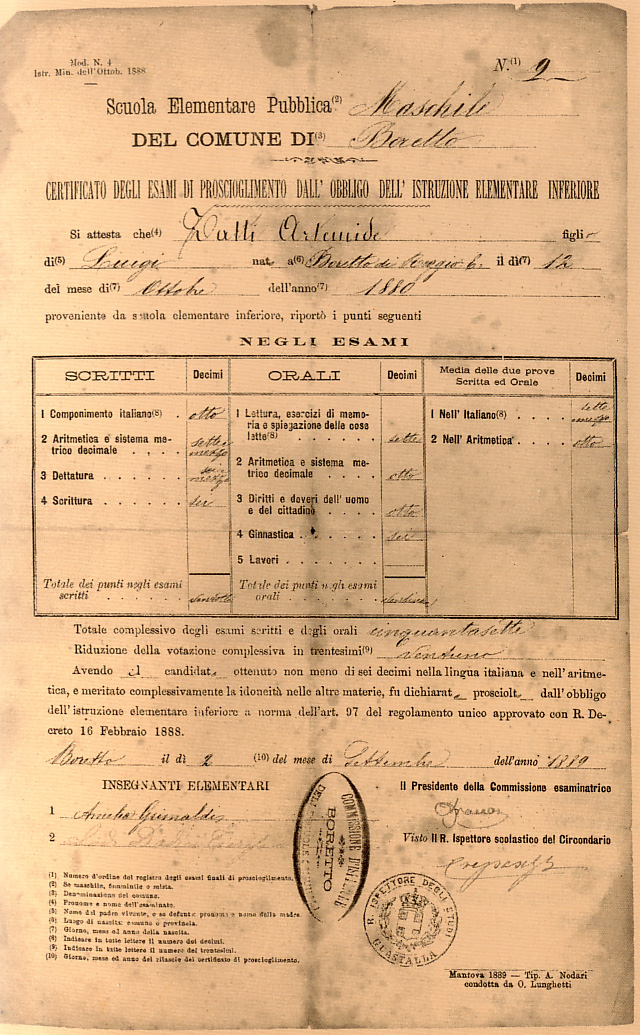 Mod. N. 4
Istr. Min. dell'Ottob. 1888
N.(1) 9
Scuola Elementare Pubblica(2) Maschile
DEL COMUNE DI(3) Boretto
CERTIFICATO DEGLI ESAMI DI PROSCIOGLIMENTO DALL' OBBLIGO DELL' ISTRUZIONE ELEMENTARE INFERIORE
Si attesta che(4) Zatti Artemide figlio
di(5) Luigi nat a(6) Boretto di Reggio E. il dì(7) 12
del mese di(7) Ottobre dell'anno(7) 1880
proveniente da scuola elementare inferiore, riportò i punti seguenti
NEGLI ESAMI
SCRITTI Decimi
1 Componimento italiano(8) otto
2 Aritmetica e sistema me-
trico decimale sette mezzo
3 Dettatura sei mezzo
4 Scrittura sei
Totale dei punti negli esami
scritti ventotto
ORALI Decimi
1 Lettura, esercizi di memo-
ria e spiegazione delle cose
lette(8) sette
2 Aritmetica e sistema me-
trico decimale otto
3 Diritti e doveri dell' uomo
e del cittadino otto
4 Ginnastica sei
5 Lavori
Totale dei punti negli esami
orali ventinove
Media delle due prove
Scritta ed Orale Decimi
1 Nell' Italiano(8) sette mezzo
2 Nell' Aritmetica otto
Totale complessivo degli esami scritti e degli orali cinquantasette
Riduzione della votazione complessiva in trentesimi(9) Ventuno
Avendo il candidat ottenuto non meno di sei decimi nella lingua italiana e nell'aritme-
tica, e meritato complessivamente la idoneità nelle altre materie, fu dichiarat prosciolt dall'obbligo
dell'istruzione elementare inferiore a norma dell'art. 97 del regolamento unico approvato con R. De-
creto 16 Febbraio 1888.
Boretto il dì 2 (10) del mese di Settembre dell'anno 1889
INSEGNANTI ELEMENTARI
1 Amelio Grimaldi
2
Il Presidente della Commissione esaminatrice
Visto Il R. Ispettore scolastico del Circondario
COMMISSIONE D'VIGILANZA
BORETTO
R. ISPETTORE DEGLI STUDI
GUASTALLA
(1) Numero d'ordine del registro degli esami finali di proscioglimento.
(2) Se maschile, femminile o mista.
(3) Denominazione del comune.
(4) Pronome e nome dell'esaminato.
(5) Nome del padre vivente, o se defunto pronome e nome della madre.
(6) Luogo di nascita: comune o provincia.
(7) Giorno, mese ed anno della nascita.
(8) Indicare in tutte lettere il numero dei decimi.
(9) Indicare in tutte lettere il numero dei trentesimi.
(10) Giorno, mese ed anno del rilascio del certificato di proscioglimento.
Mantova 1889 — Tip. A. Nodari
condotta da O. Lunghetti